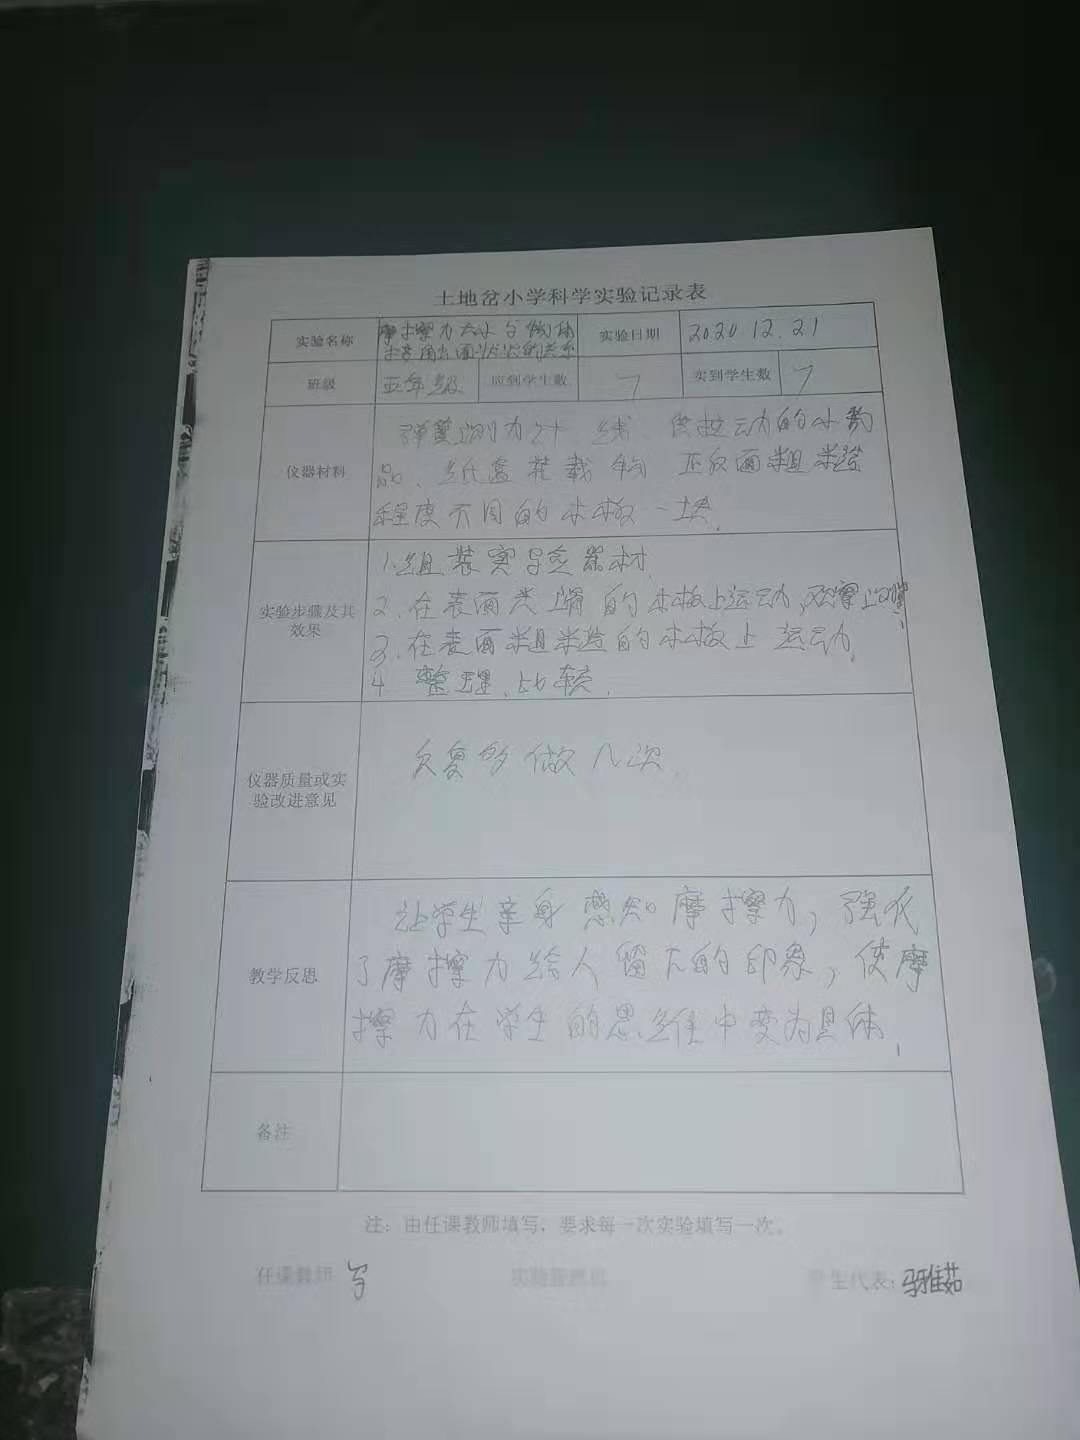 土地岔小学科学实验记录表
实验名称
摩擦力大小与物体
接触面状况的关系
实验日期
2020.12.21
班级
五年级
应到学生数
7
实到学生数
7
仪器材料
弹簧测力计、线、供拉运动的小
品、纸盒装载物 正反面粗糙
程度不同的木板一块.
实验步骤及其
效果
1.组装实验器材
2.在表面光滑的木板上运动,观察
3.在表面粗糙的木板上运动.
4 整理.比较.
仪器质量或实
验改进意见
反复多做几次.
教学反思
让学生亲身感知摩擦力,强化
了摩擦力给人留下的印象,使摩
擦力在学生的思维中变为具体.
备注
注：由任课教师填写，要求每一次实验填写一次。
任课教师
实验管理员
学生代表：马雅茹